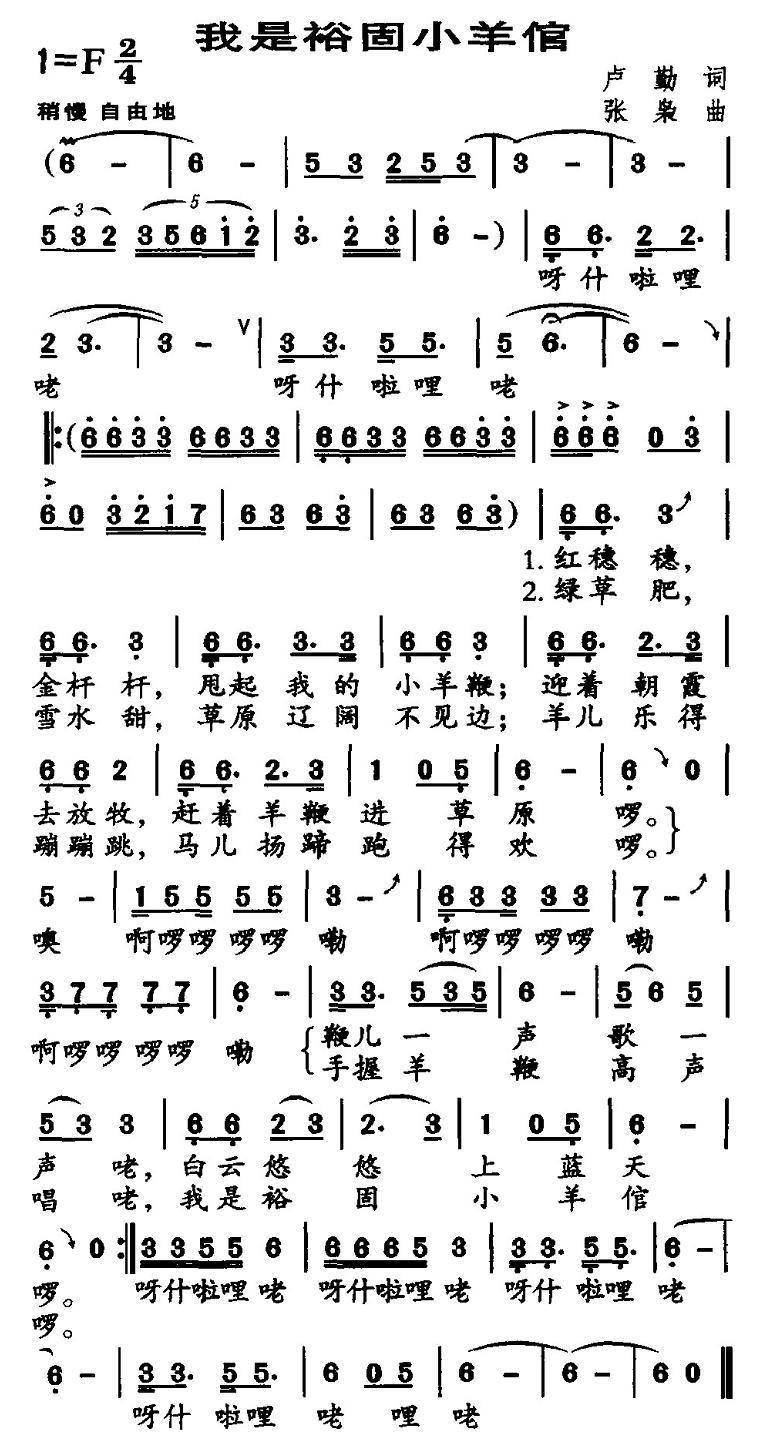 我是裕固小羊倌
1=F 2/4
卢 勤 词
稍慢 自由地
张 枭 曲
(6 - | 6 - | 5 3 2 5 3 | 3 - | 3 - |
3 5
5 3 2 3 5 6 1 2 | 3. 2 3 | 6 - ) | 6 6. 2 2. |
呀什 啦哩
2 3. | 3 - ∨ | 3 3. 5 5. | 5 6. | 6 - |
咾 呀什 啦哩 咾
‖: ( 6 6 3 3 6 6 3 3 | 6 6 3 3 6 6 3 3 | 6 6 6 0 3 |
6 0 3 2 1 7 | 6 3 6 3 | 6 3 6 3 ) | 6 6. 3 |
1. 红穗 穗,
2. 绿草 肥,
6 6. 3 | 6 6. 3. 3 | 6 6 3 | 6 6. 2. 3 |
金杆 杆, 甩起 我 的 小羊鞭; 迎着 朝霞
雪水 甜, 草原 辽 阔 不见边; 羊儿 乐得
6 6 2 | 6 6. 2. 3 | 1 0 5 | 6 - | 6 0 |
去放牧, 赶着 羊鞭 进 草 原 啰。
蹦蹦跳, 马儿 扬蹄 跑 得 欢 啰。
5 - | 1 5 5 5 5 | 3 - | 6 3 3 3 3 | 7 - |
噢 啊啰啰 啰啰 嘞 啊啰啰 啰啰 嘞
3 7 7 7 7 | 6 - | 3 3. 5 3 5 | 6 - | 5 6 5 |
啊啰啰 啰啰 嘞 鞭儿 一 声 歌 一
手握 羊 鞭 高 声
5 3 3 | 6 6 2 3 | 2. 3 | 1 0 5 | 6 - |
声 咾, 白云 悠 悠 上 蓝 天
唱 咾, 我是 裕 固 小 羊 倌
6 0 :‖ 3 3 5 5 6 | 6 6 6 5 3 | 3 3. 5 5. | 6 - |
啰。 呀什啦哩 咾 呀什啦哩 咾 呀什 啦哩 咾
啰。
6 - | 3 3. 5 5. | 6 0 5 | 6 - | 6 - | 6 0 ‖
呀什 啦哩 咾 哩 咾